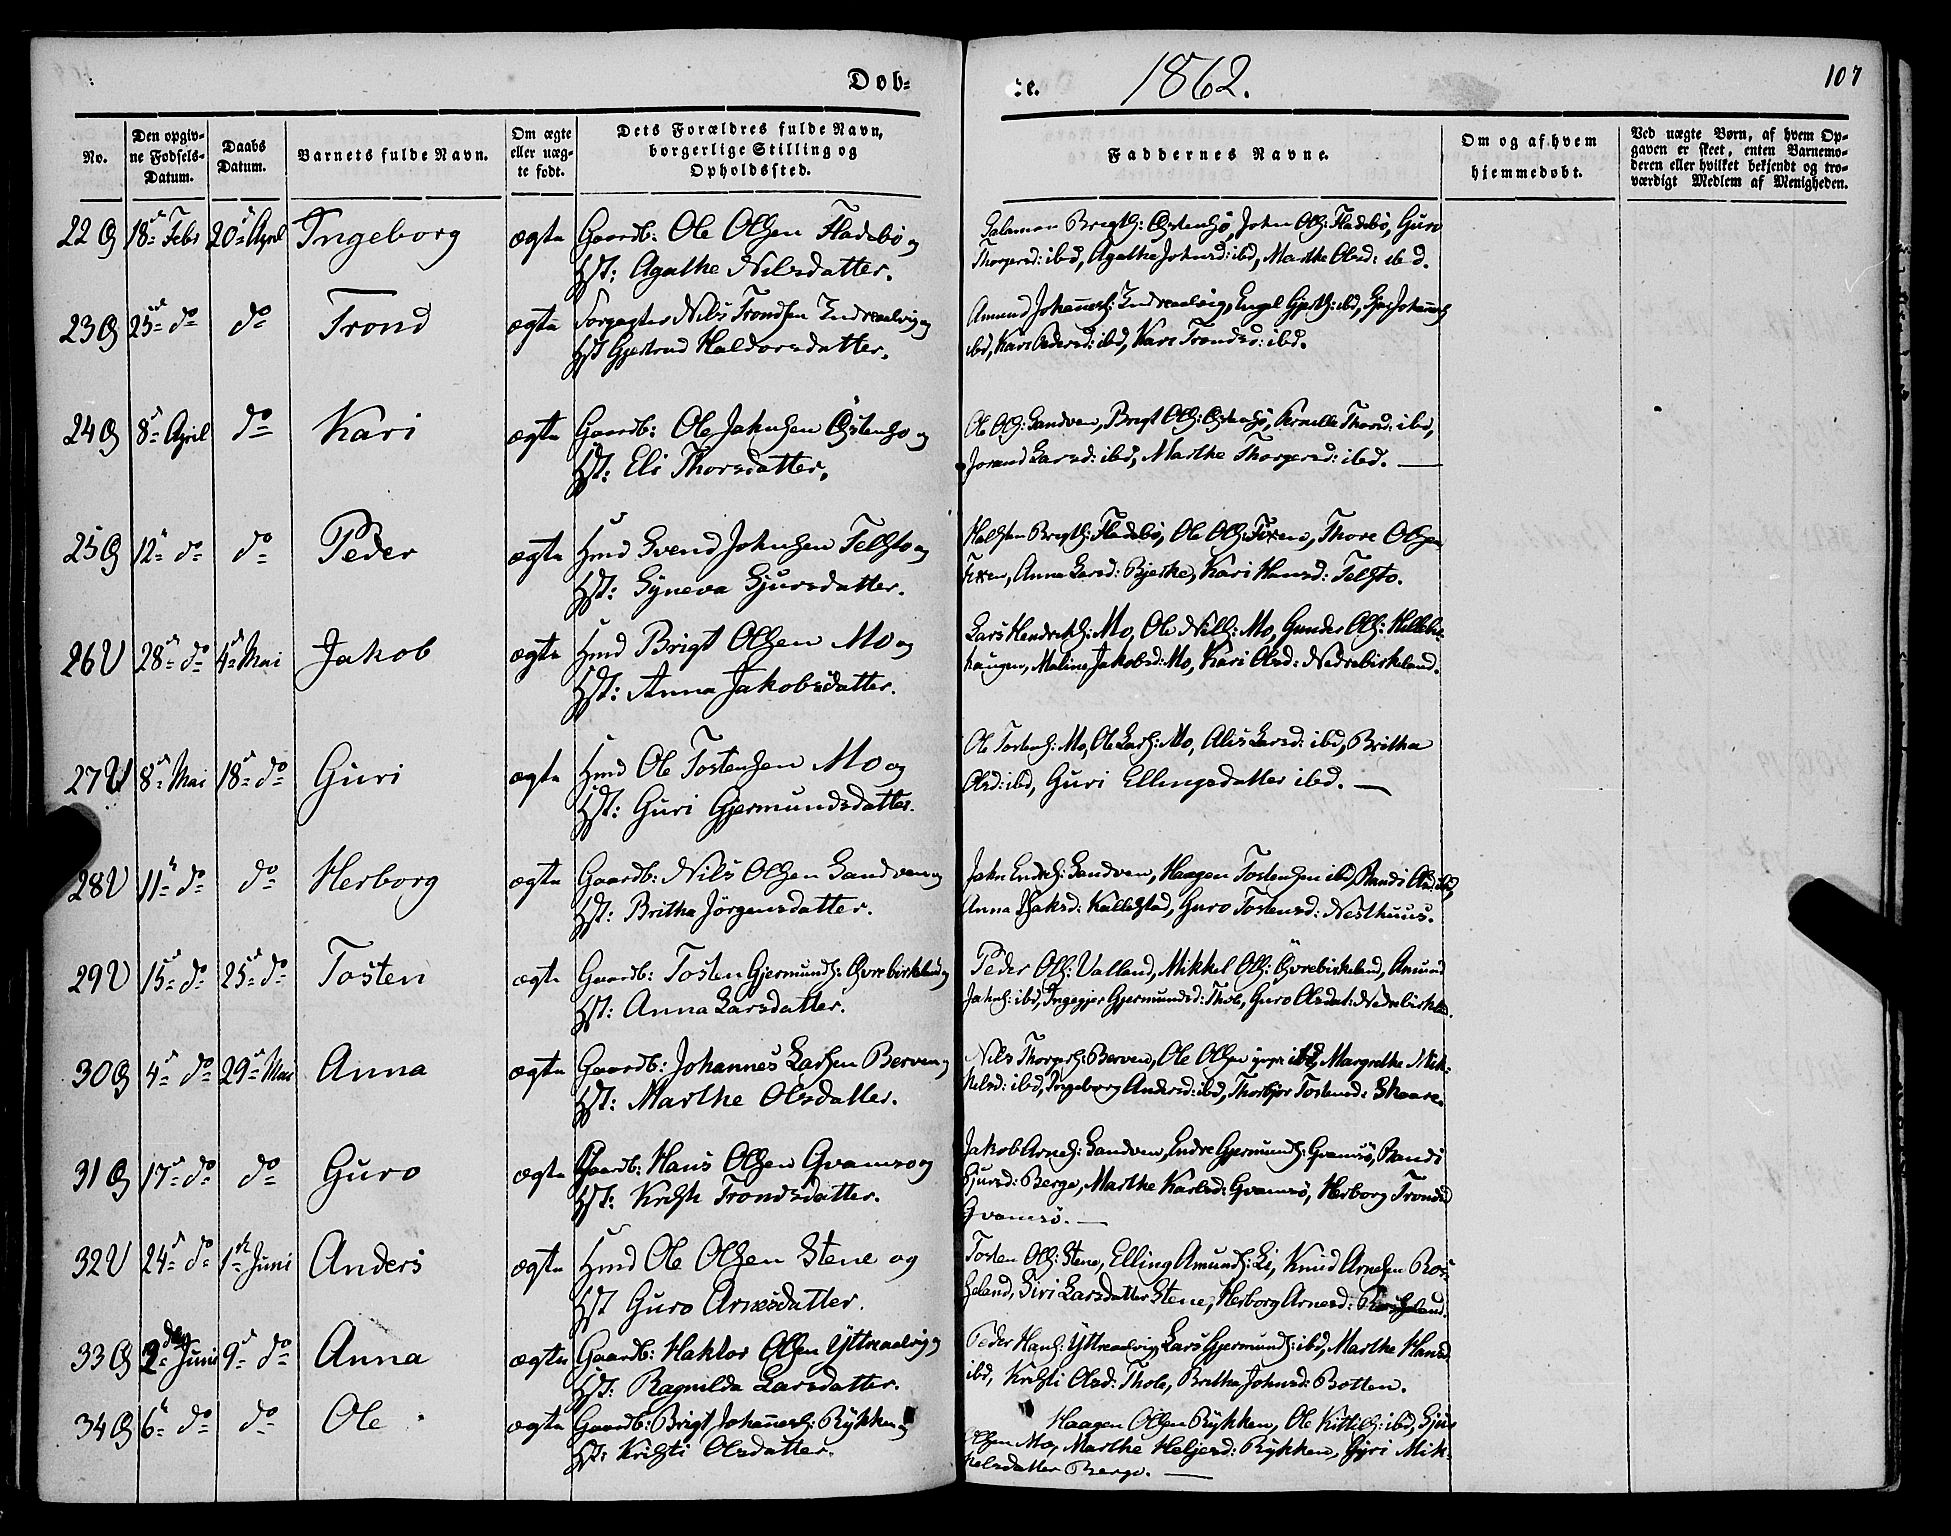 Døb=
e.
1862.
107
No.
Den opgiv-
ne Fødsels-
Datum.
Daabs
Datum.
Barnets fulde Navn.
Om ægte
eller uæg-
te født.
Dets Forældres fulde Navn,
borgerlige Stilling og
Opholdssted.
Faddernes Navne.
Om og af hvem
hjemmedøbt.
Ved uægte Børn, af hvem Op-
gaven er skeet, enten Barnemo-
deren eller hvilket bekjendt og tro-
værdigt Medlem af Menigheden.
22 18 Febr 20 April Ingeborg ægte Gaardb: Ole Olsen Fladebø og
Hst: Agathe Nilsdatter.
Salamon Brigts: Østensø, John Ols: Fladebø, Guro
Thorgersd: ibd, Agathe Johnsd: ibd, Marthe Olsd: ibd.
23 25 do do Trond ægte Forpagter Nils Trondsen Indreaalvig og
Hst Gjertrud Haldorsdatter.
Amund Johannes: Indreaalvig, Engel Gjerts: ibd,
ibd, Kari Pedersd: ibd, Kari Trondsd: ibd.
24 8 April do Kari ægte Gaardb: Ole Johnsen Østensø og
Hst: Eli Thorsdatter.
Ole Ols: Sandven, Brigt Ols: Østensø, Thorsd: ibd,
Joraand Larsd: ibd, Marthe Thorgersd: ibd. —
25 12 do do Peder ægte Hmd Svend Johnsen Telsto og
Hst: Syneva Sjursdatter.
Halsten Brigts: Fladebø, Ole Ols: Tixen, Thore Olsen
Tixen, Anna Larsd: Bjerke, Kari Hansd: Telsto.
26 V 28 do 4 Mai Jakob ægte Hmd Brigt Olsen Mo og
Hst: Anna Jakobsdatter.
Lars Hendriks: Mo, Ole Nils: Mo, Gunder Ols:
haugen, Maline Jakobsd: Mo, Kari Olsd: Nedrebirkeland.
27 V 8 Mai 18 do Guri ægte Hmd Ole Tostensen Mo og
Hst: Guri Gjermundsdatter.
Ole Tostens: Mo, Ole Lars: Mo, Alis Larsd: ibd, Britha
Olsd: ibd, Guri Ellingsdatter ibd. —
28 V 11 do do Herborg ægte Gaardb: Nils Olsen Sandven og
Hst: Britha Jørgensdatter.
John Endres: Sandven, Haagen Tostensen ibd, Randi Olsd: ibd,
Anna Isaksd: Kallestad, Guro Tostensd: Nesthuus.
29 V 15 do 25 do Tosten ægte Gaardb: Tosten Gjermunds: Øvrebirkeland og
Hst: Anna Larsdatter.
Peder Ols: Valland, Mikkel Ols: Øvrebirkeland, Amund
Johns: ibd, Ingegjer Gjermundsd: Thole, Guro Olsdat: Nedrebirkeland.
30 4 do 29 Mai Anna ægte Gaardb: Johannes Larsen Berven og
Hst: Marthe Olsdatter.
Nils Thorgers: Berven, Ole Olsen yngr: ibd, Margrethe Mik-
kelsd: ibd, Ingeborg Andersd: ibd, Thorbjør Tostensd: Skaare.
31 17 do do Guro ægte Gaardb: Hans Olsen Qvamsø og
Hst: Trondsdatter.
Jakob Arnes: Sandven, Endre Gjermunds: Qvamsø, Randi
Sjursd: Berge, Marthe Karlsd: Qvamsø, Herborg Trondsd
Qvamsø. —
32 V 24 do 1 Juni Anders ægte Hmd Ole Olsen Stene og
Hst Guro Arnesdatter.
Tosten Ols: Stene, Elling Amunds: Li, Knud Arnesen Ros-
seland, Siri Larsdatter Stene, Herborg Arnesd: Rosseland.
33 2 Juni 9 do Anna ægte Gaardb: Haktor Olsen Yttreaalvig og
Hst: Ragnilda Larsdatter.
Peder Hans: Yttreaalvig, Lars Gjermunds: ibd, Marthe Hansd
ibd, Kristi Olsd: Thole, Britha Johnsd: Botten.
34 6 do do Ole ægte Gaardb: Brigt Johannes: Rykken og
Hst: Kristi Olsdatter.
Haagen Olsen Rykken, Ole Kittils: ibd, Sjur
Olsen Mo, Marthe Heljesd: Rykken, Gyri Mik-
kelsdatter Berge. —